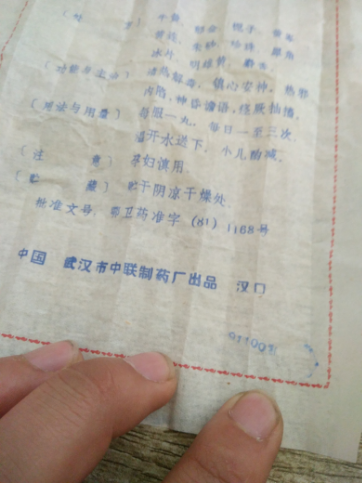 牛黄, 郁金, 栀子, 黄芩
黄连, 朱砂, 珍珠, 犀角
冰片, 明雄黄, 麝香
(功能与主治) 清热解毒, 镇心安神, 热邪
内陷, 神昏谵语, 痉厥抽搐,
(用法与用量) 每服一丸, 每日一至三次,
温开水送下, 小儿酌减,
(注 意) 孕妇慎用,
(贮 藏) 贮于阴凉干燥处,
标准文号: 鄂卫药准字 (81) 1168号
中国 武汉市中联制药厂出品 汉口